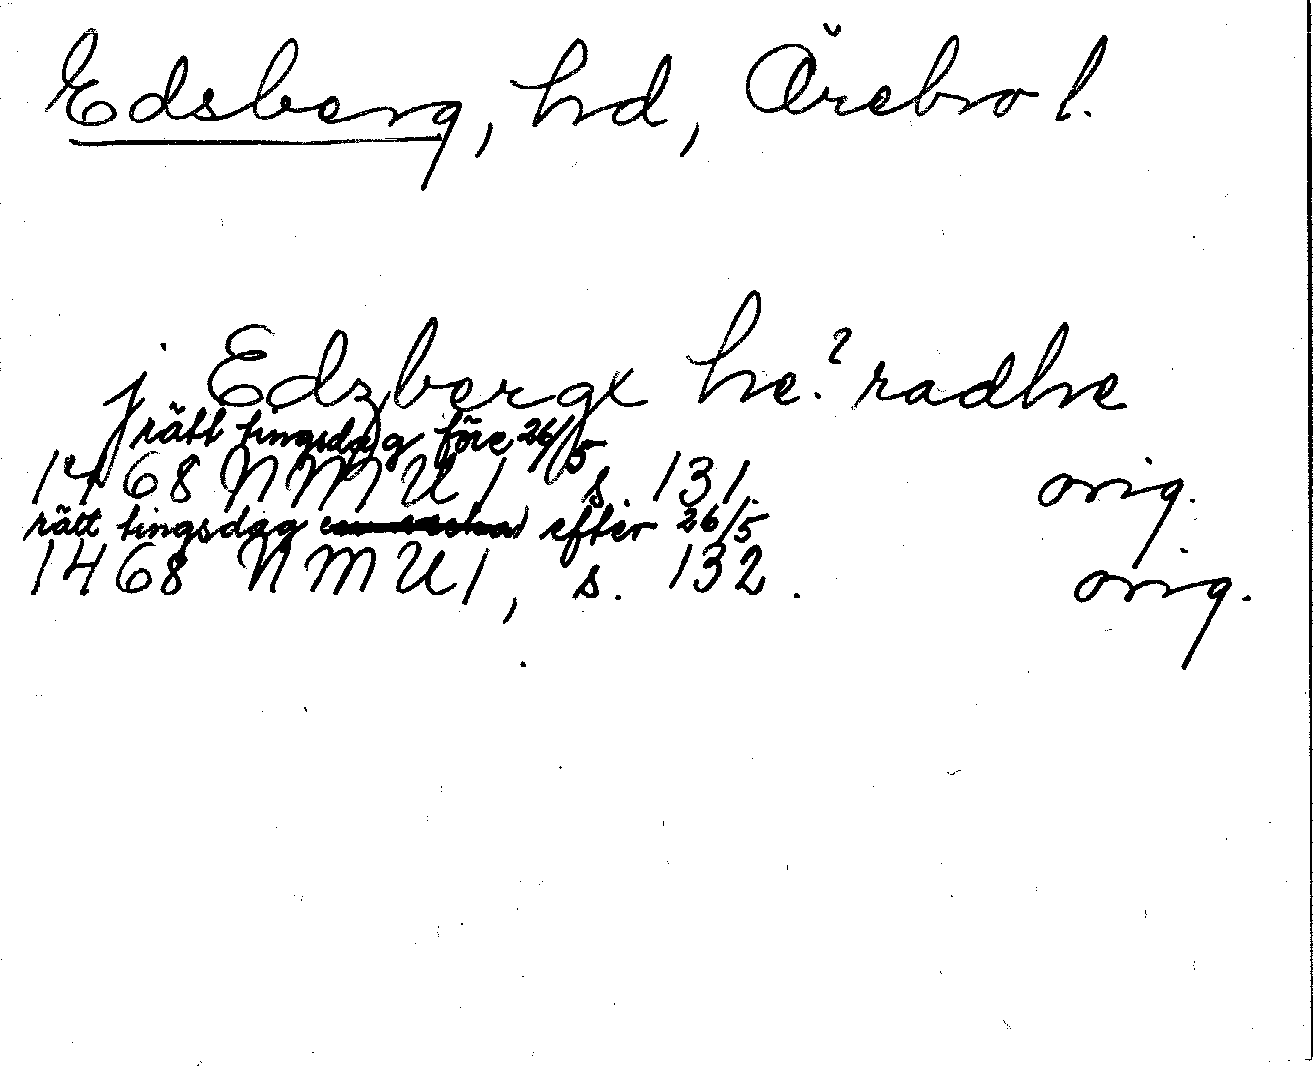 Edsberg, hd, Örebro l.
j Edzbergx he.? radhe
rätt tingsdag före 26/5
1468 NMU 1 s. 131. orig.
rätt tingsdag efter 26/5
1468 NMU 1, s. 132. orig.